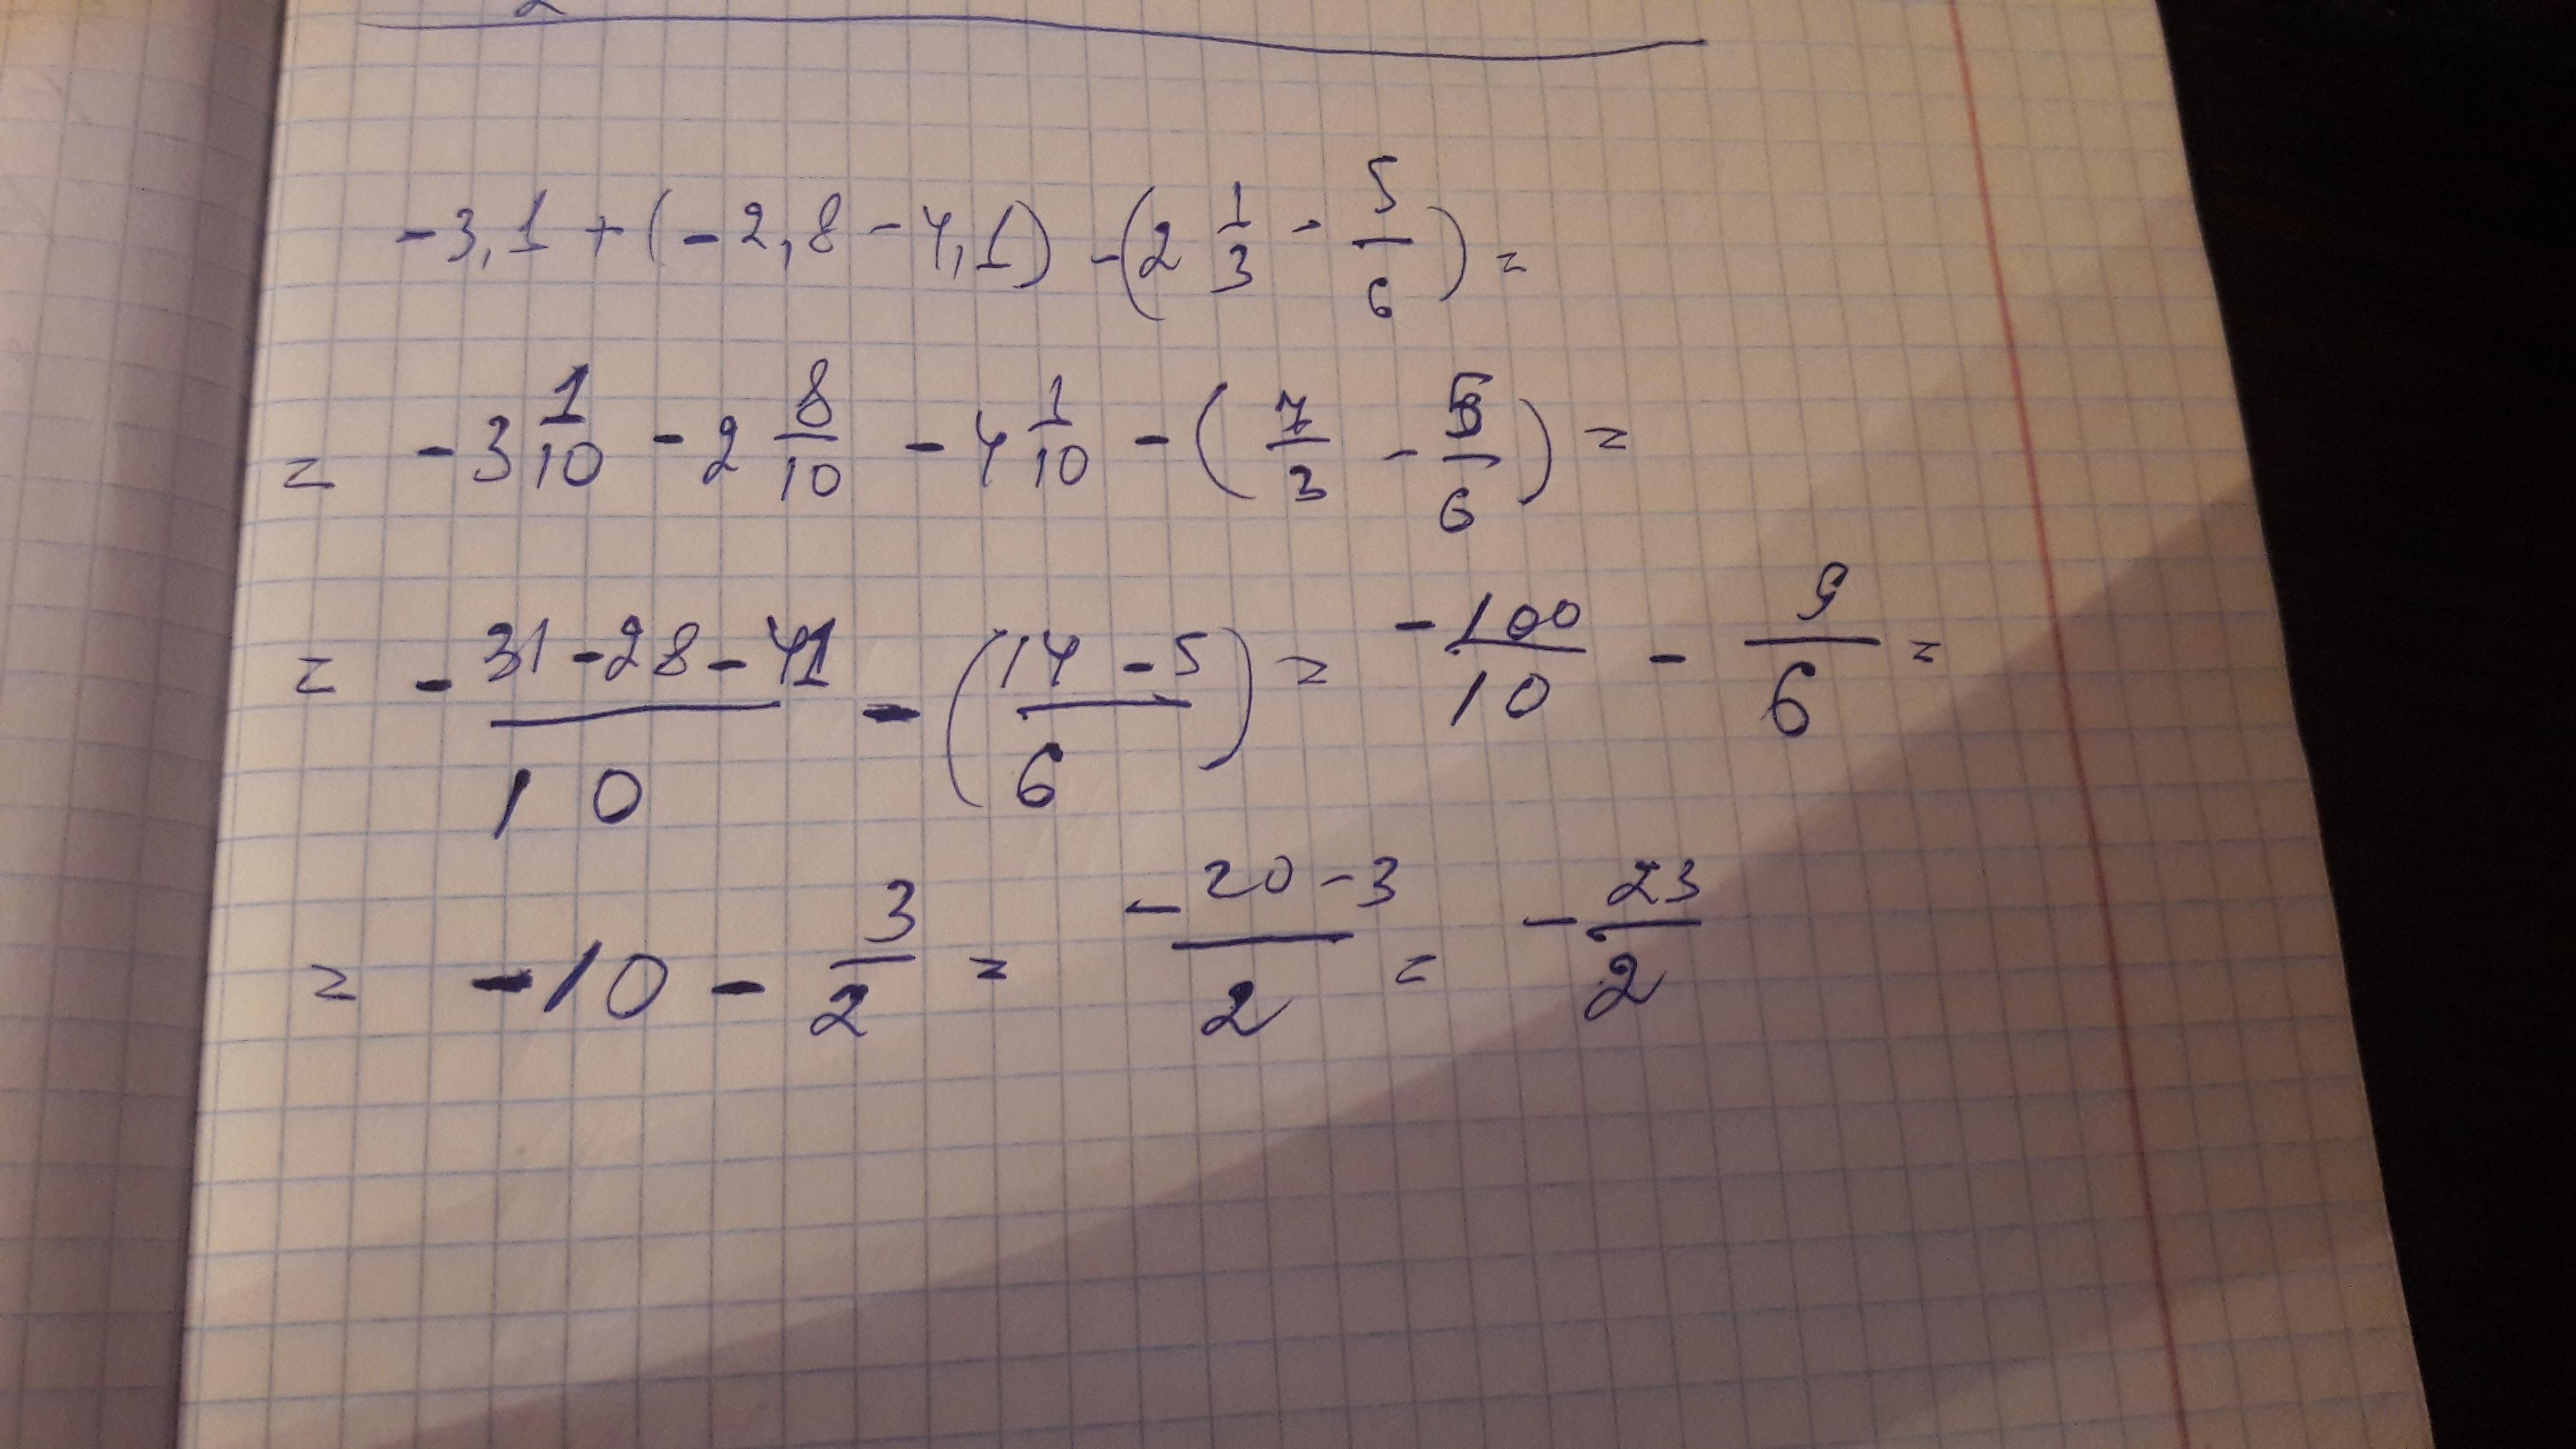 -3,1 + (-2,8 - 4,1) - (2 1/3 - 5/6) =
= -3 1/10 - 2 8/10 - 4 1/10 - (7/3 - 5/6) =
= (-31-28-41)/10 - ((14-5)/6) = -100/10 - 9/6 =
= -10 - 3/2 = (-20-3)/2 = -23/2